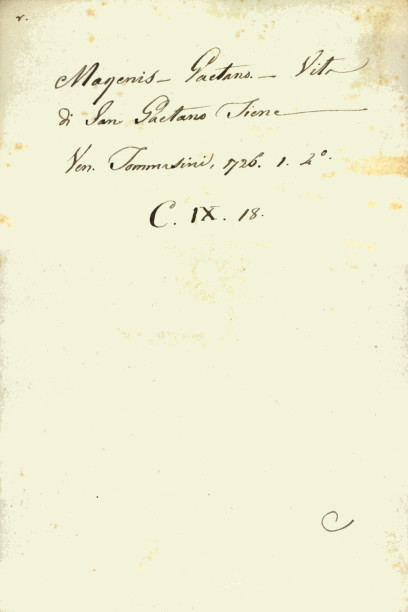 r.
Magenis - Gaetano. - Vita
di San Gaetano Tiene
Ven. Tommasini, 1726. 1. 2º.
C. IX. 18.
C